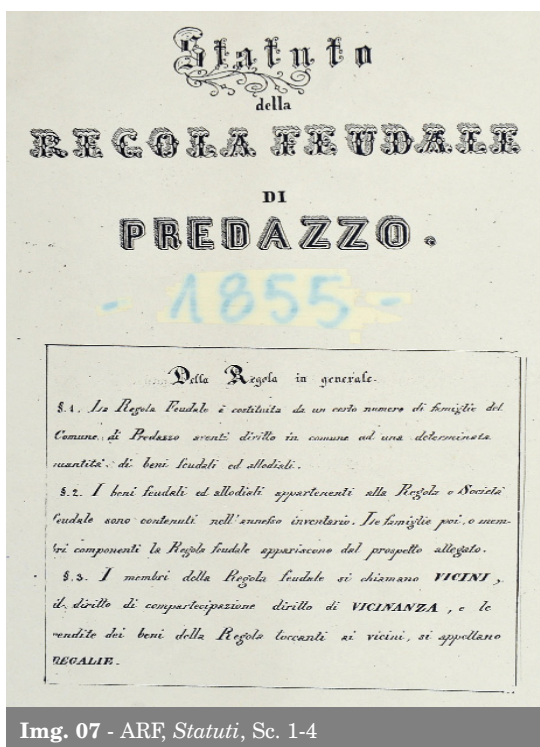 Statuto
della
REGOLA FEUDALE
DI
PREDAZZO.
- 1855 -
Della Regola in generale.
§. 1. La Regola Feudale è costituita da un certo numero di famiglie del
Comune di Predazzo aventi diritto in comune ad una determinata
quantità di beni feudali ed allodiali.
§. 2. I beni feudali ed allodiali appartenenti alla Regola o Società
feudale sono contenuti nell'annesso inventario. Le famiglie poi, o mem-
bri componenti la Regola feudale appariscono dal prospetto allegato.
§. 3. I membri della Regola feudale si chiamano VICINI,
il diritto di compartecipazione diritto di VICINANZA, e le
rendite dei beni della Regola toccanti ai vicini, si appellano
REGALIE.
Img. 07 - ARF, Statuti, Sc. 1-4